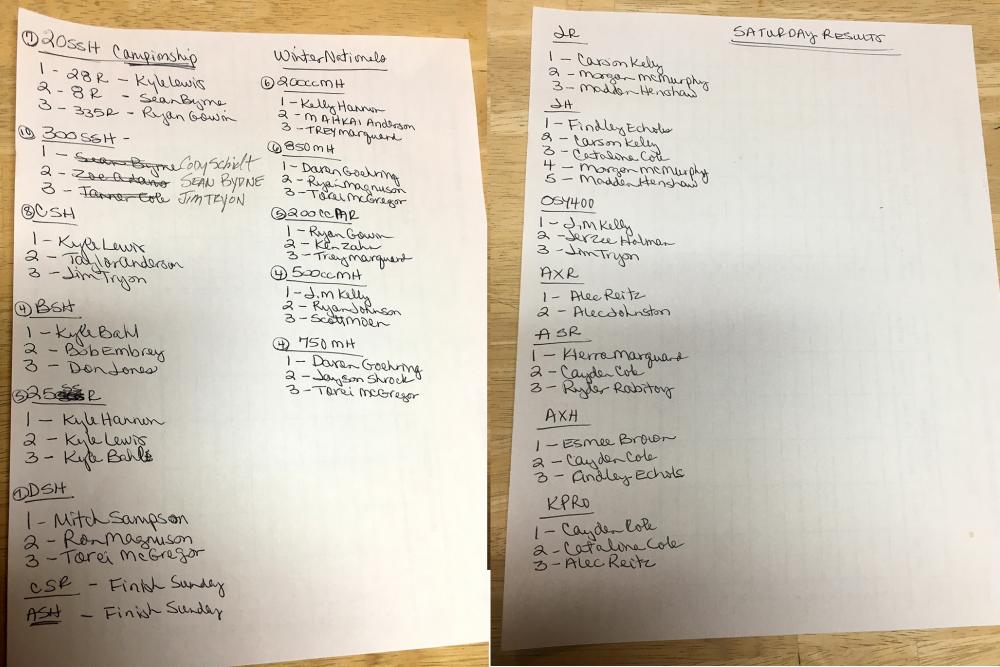 ⑦ 20SSH Campionship
1 - 28R - Kyle Lewis
2 - 8R - Sean Byrne
3 - 335R - Ryan Gowin
⑩ 300SSH -
1 - Sean Byrne Cody Schidt
2 - Zoe Adams SEAN BYDNE
3 - Tanner Cole JIM TRYON
⑧ CSH
1 - Kyle Lewis
2 - Taylor Anderson
3 - Jim Tryon
④ BSH
1 - Kyle Bahl
2 - Bob Embrey
3 - Don Jones
25SSR
1 - Kyle Hannon
2 - Kyle Lewis
3 - Kyle Bahl
DSH
1 - Mitch Sampson
2 - Ron Magnuson
3 - Torei McGregor
CSR - Finish Sunday
ASH - Finish Sunday
Winter Nationals
⑥ 200ccMH
1 - Kelly Hannon
2 - MAHKAI Anderson
3 - TREY marquard
⑥ 850MH
1 - Daren Goehring
2 - Ryan Magnuson
3 - Torei McGregor
⑤ 200cc
1 - Ryan Gowin
2 - Ken Zahn
3 - Trey marquard
④ 500ccMH
1 - J.M Kelly
2 - Ryan Johnson
3 - Scott Moen
④ 750MH
1 - Daren Goehring
2 - Jayson Shrock
3 - Torei McGregor
SATURDAY RESULTS
JR
1 - Carson Kelly
2 - Morgan McMurphy
3 - Madden Henshaw
JH
1 - Findley Echols
2 - Carson Kelly
3 - Cataline Cole
4 - Morgan McMurphy
5 - Madden Henshaw
OSY400
1 - J.M Kelly
2 - Jerzee Holman
3 - Jim Tryon
AXR
1 - Alec Reitz
2 - Alec Johnston
ASR
1 - Kierra Marquard
2 - Cayden Cole
3 - Ryder Rabitoy
AXH
1 - Esmee Brown
2 - Cayden Cole
3 - Findley Echols
KPRO
1 - Cayden Cole
2 - Cataline Cole
3 - Alec Reitz